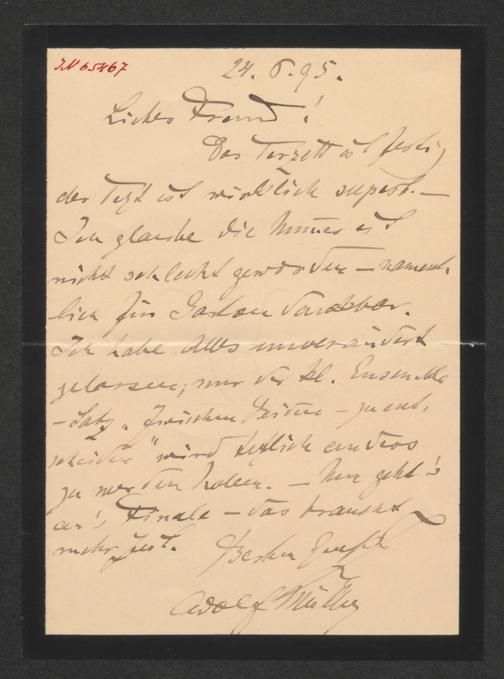 I.N 65467
24. 6. 95.
Liebes Freund!
Das Terzett ist fertig,
der Text ist wirklich superb. —
Ich glaube die Nummer ist
nicht schlecht geworden — nament-
lich für dankbar.
Ich habe Alles unverändert
gelassen; nur der kl. Ensemble
-Satz „Zwischen Beiden — zu ent-
scheiden" wird textlich anders
zu werden haben. — Nun geht's
an's Finale — das braucht
mehr Zeit. Besten Gruß
Adolf Müller